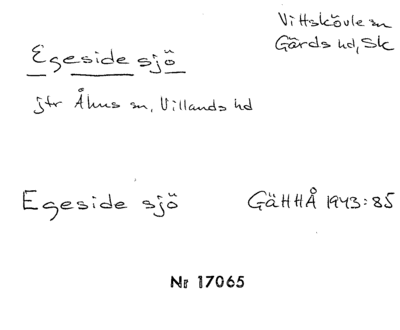 Vittskövle sn
Gärds hd, Sk
Egeside sjö
jfr Åhus sn, Villands hd
Egeside sjö GäHHÅ 1943:85
Nr 17065